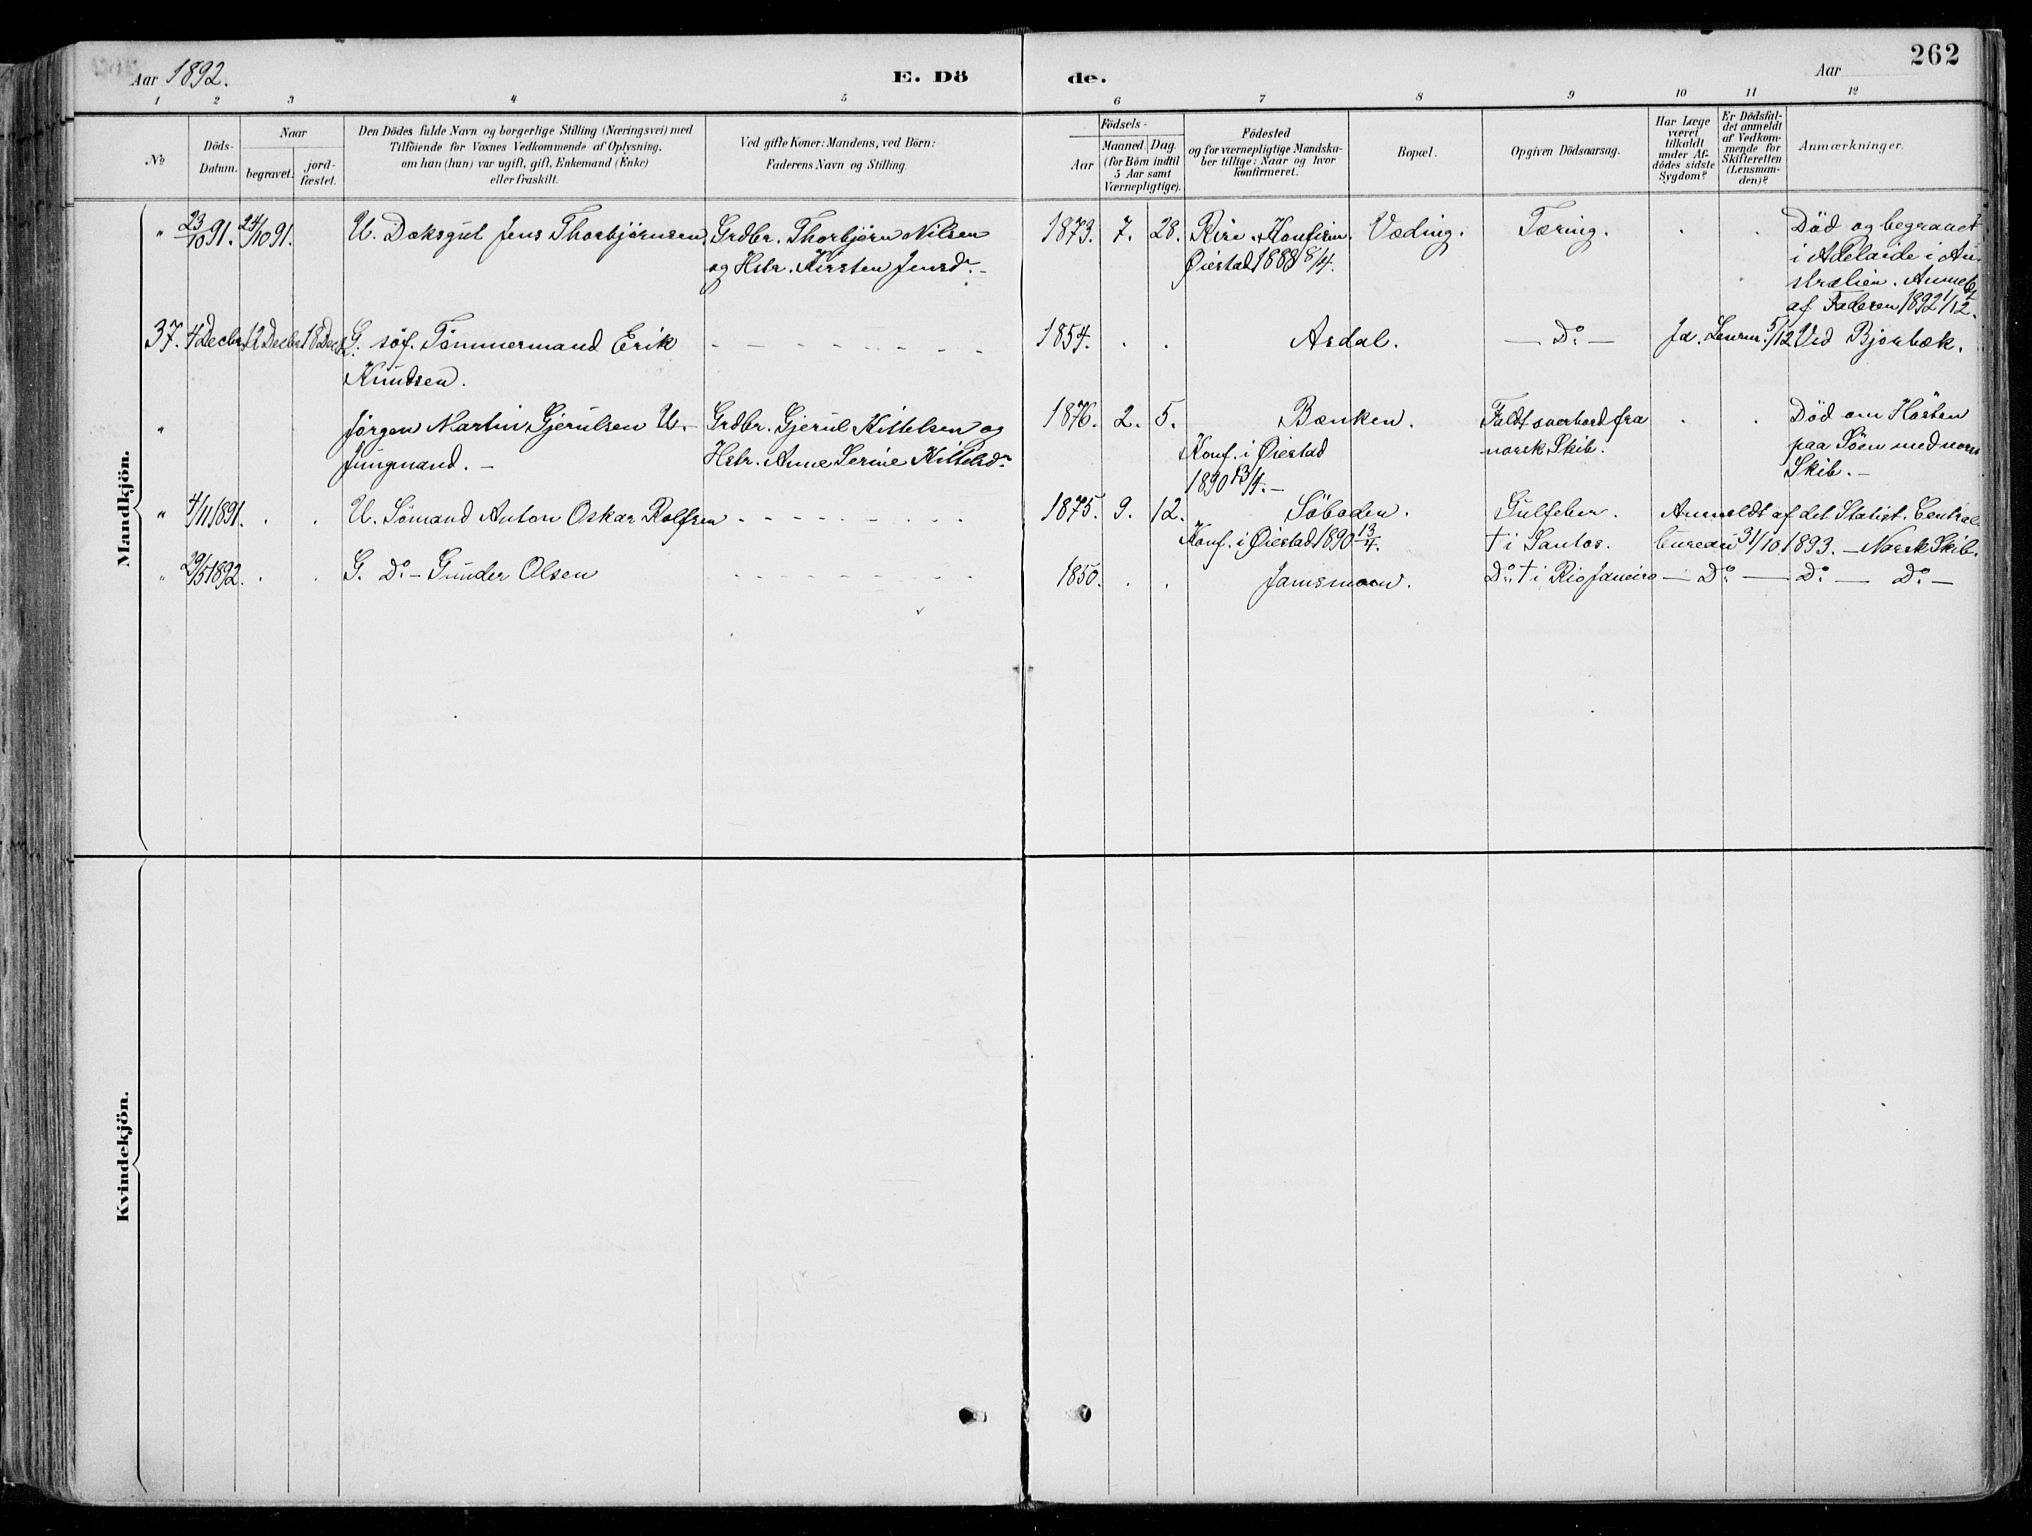 262
Aar 1892.
E. Dö de.
Aar
1 2 3 4 5 6 7 8 9 10 11 12
No
Döds-Datum.
Naar
begravet.
jord-fæstet.
Den Dödes fulde Navn og borgerlige Stilling (Næringsvei) med
Tilföiende for Voxnes Vedkommende af Oplysning,
om han (hun) var ugift, gift, Enkemand (Enke)
eller fraskilt.
Ved gifte Koner: Mandens, ved Börn:
Faderens Navn og Stilling.
Födsels-
Aar
Maaned. Dag.
(for Börn indtil
5 Aar samt
Værnepligtige).
Födested
og for værnepligtige Mandska-
ber tillige: Naar og hvor
konfirmeret.
Bopæl.
Opgiven Dödsaarsag.
Har Læge
været
tilkaldt
under Af-
dödes sidste
Sygdom?
Er Dödsfal-
det anmeldt
af Vedkom-
mende for
Skifteretten
(Lensman-
den)?
Anmærkninger.
Mandkjön.
" 23/10 91. 24/10 91. U. Doksgut Jens Thorbjørnsen. Grdbr. Thorbjørn Nilsen 1873. 7. 28. Rire. Konfirm. Væding. Tæring. . . Död og begravet
og Hstr. Kirsten Jensd. – Øiestad 1888 8/4. i Adelaide i Au-
stralien. Anmeldt
af Faderen 1892 1/12.
37. 4 Decbr. 12 Decbr. 18 Decbr. G. søf. Tømmermand Erik 1854. . . Asdal. – Do – Ja. Lensm. 5/12 Ved Bjorbæk.
Knudsen.
" Jørgen Martin Gjerulsen U. – Grdbr. Gjerul Kittelsen og 1876. 2. 5. Bænken. Faldt overbord fra . . Död om Hösten
Jungmand. – Hstr. Anne Serine Kittelsd. Konf. i Øiestad norsk Skib. paa Söen med norsk
1890 13/4. – Skib. –
" 4/11 1891. . . U. Sømand Anton Oskar Rolfsen 1875. 9. 12. Söboden. Gulfeber. Anmeldt af det Statist. Central-
Konf. i Øiestad 1890 13/4. † i Santos. bureau 31/10 1893. – Norsk Skib.
" 29/5 1892. . . G. Do – Gunder Olsen 1850. . . Jomsmoen. Do † i Rio Janeiro – Do – Do – Do –
Kvindekjön.